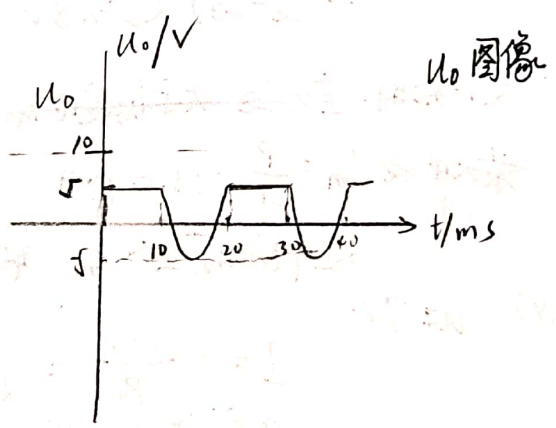 u₀/V
u₀ 图像
u₀
10
5
10 20 30 40 t/ms
5